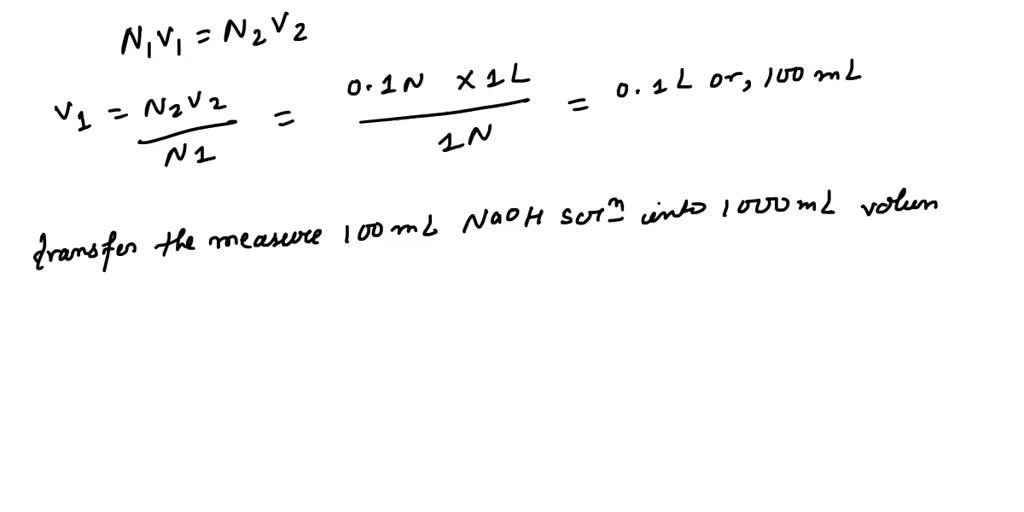 N₁V₁ = N₂V₂
V1 = N2V2 / N1 = 0.1N × 1L / 1N = 0.1L or, 100 mL
transfer the measure 100 mL NaOH soln into 1000 mL volum